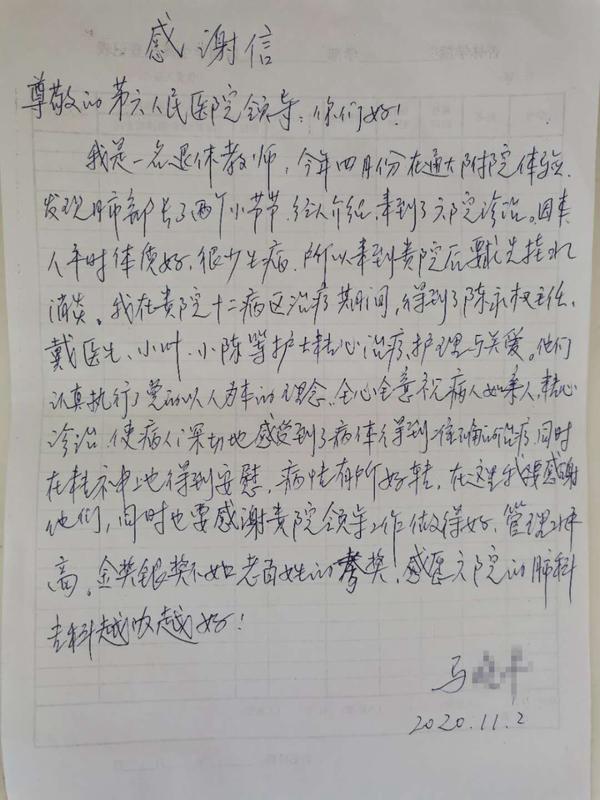 感谢信
尊敬的第六人民医院领导：你们好！
我是一名退休教师，今年四月份在通大附院体验，
发现肺部长了两个小节节，经人介绍，来到了六院诊治。因本
人平时体质好，很少生病，所以来到贵院后要求先挂水
消炎。我在贵院十二病区治疗期间，得到了陈永权主任、
戴医生、小叶、小陈等护士精心治疗、护理与关爱。他们
认真执行了党的以人为本的理念，全心全意视病人如亲人，精心
诊治，使病人深切地感受到了病体得到准确的治疗，同时
在精神上也得到安慰，病情有所好转，在这里我要感谢
他们，同时也要感谢贵院领导工作做得好，管理水平
高。金奖银奖不如老百姓的夸奖，愿六院的肺科
专科越办越好！
马
2020.11.2